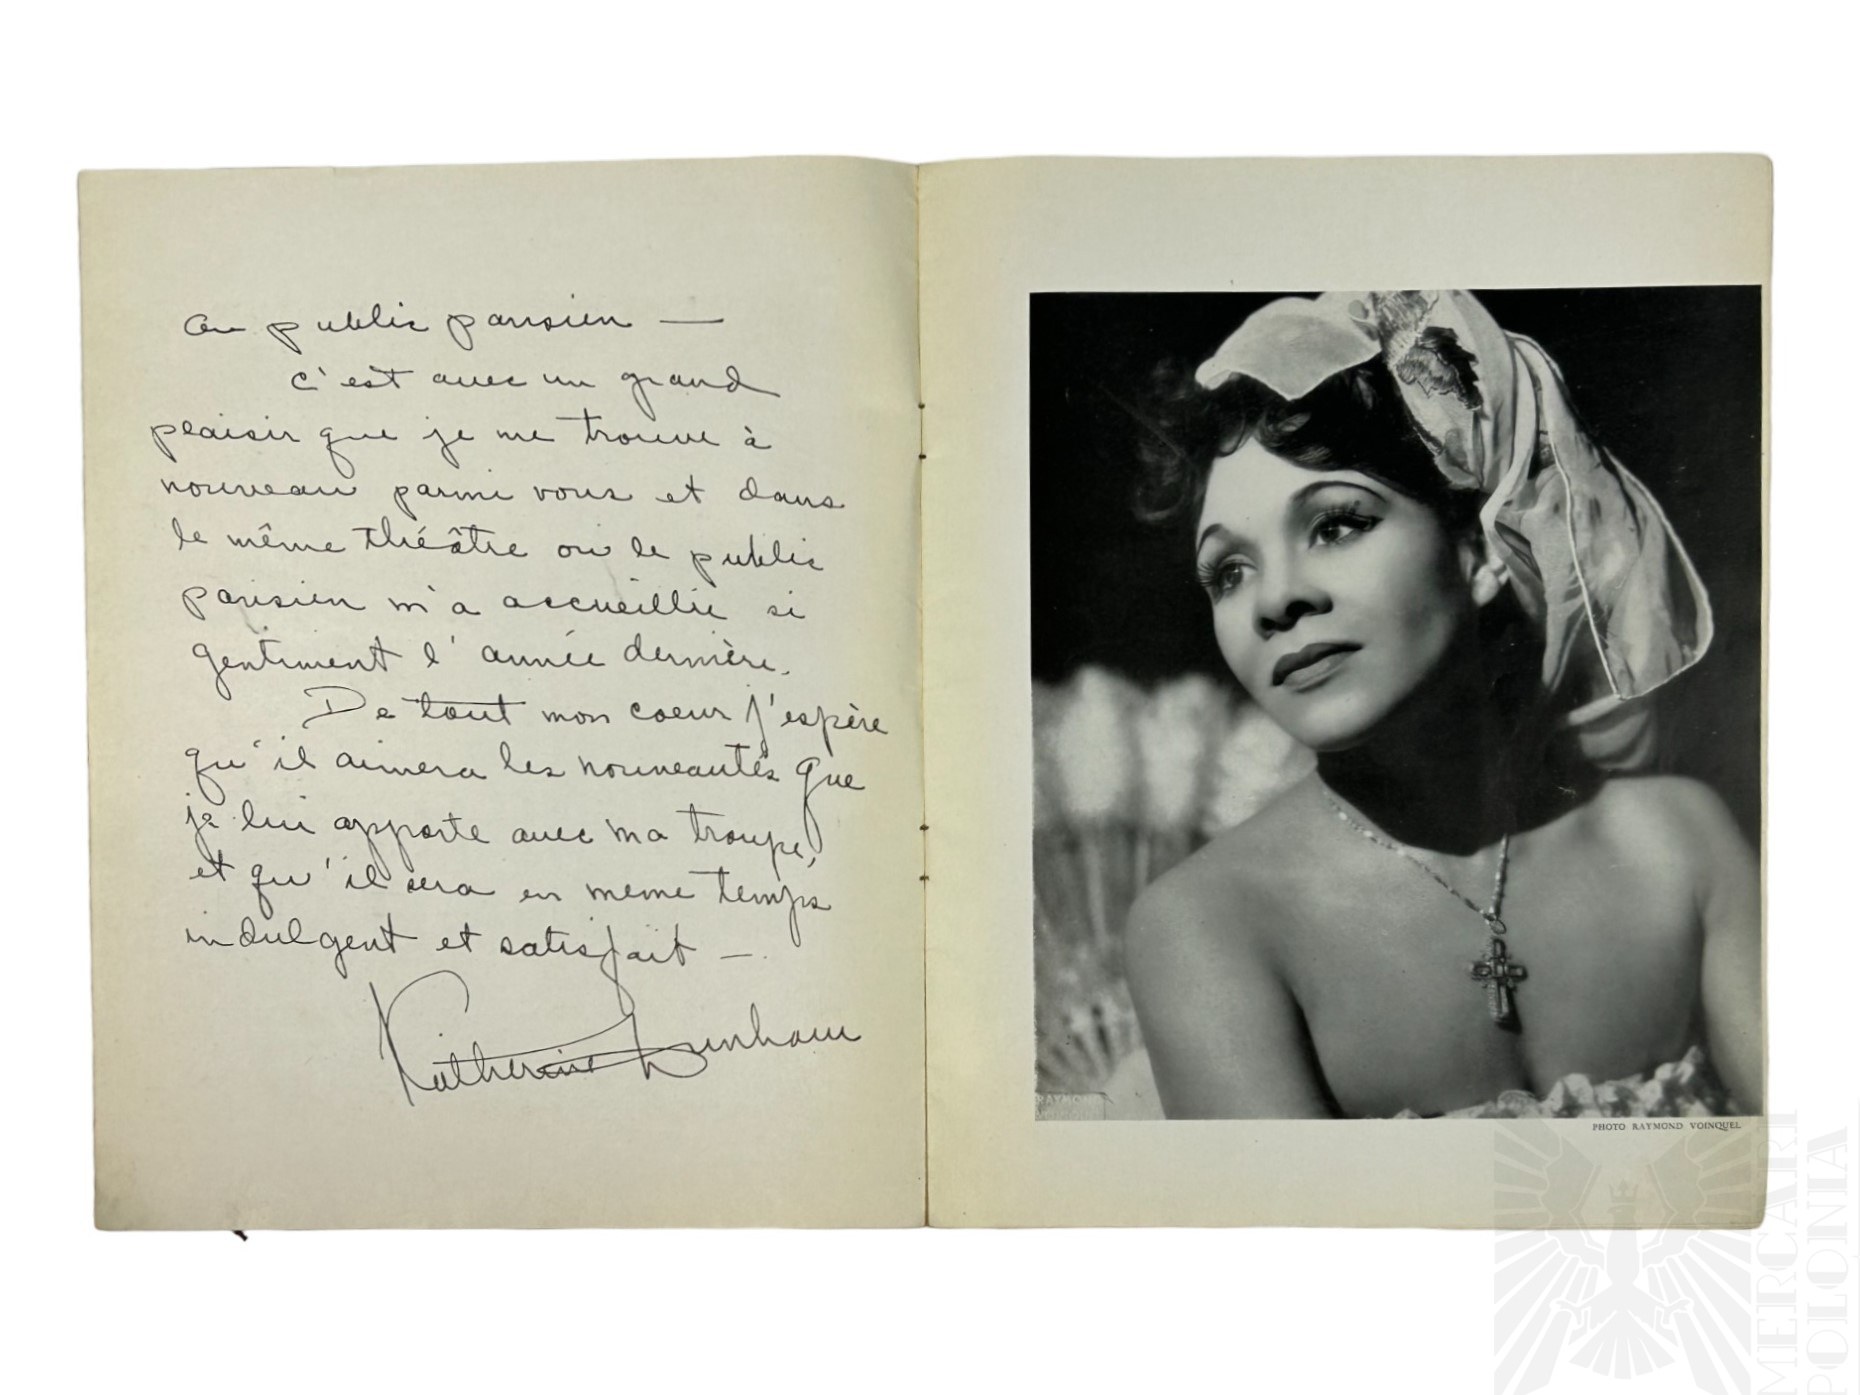 au public parisien —
c'est avec un grand
plaisir que je me trouve à
nouveau parmi vous et dans
le même théâtre où le public
parisien m'a accueillie si
gentiment l'année dernière.
De tout mon coeur j'espère
qu'il aimera les nouveautés que
je lui apporte avec ma troupe,
et qu'il sera en meme temps
indulgent et satisfait —
Katherine Dunham
RAYMOND
VOINQUEL
PHOTO RAYMOND VOINQUEL
MERCARI
POLONIA